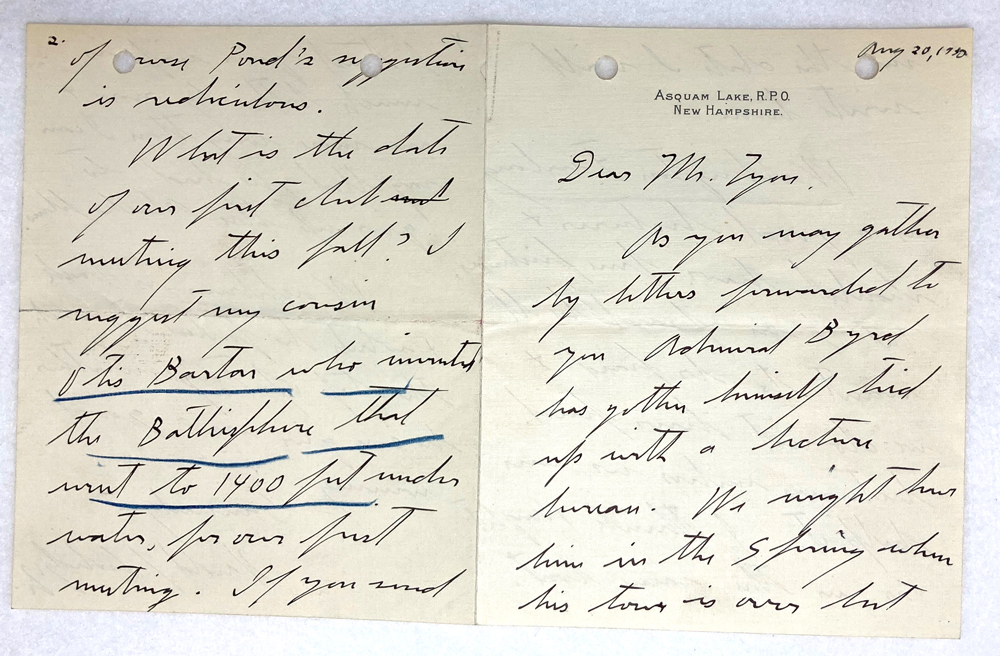 Aug 20, 1930
Asquam Lake, R.P.O.
New Hampshire.
Dear Mr. Tyon,
As you may gather
by letters forwarded to
you Admiral Byrd
has gotten himself tied
up with a lecture
bureau. We might have
him in the Spring when
his tour is over but
2.
of course Pond's suggestion
is rediculous.
What is the date
of our first club and
meeting this fall? I
suggest my cousin
Otis Barton who invented
the Bathisphere that
went to 1400 feet under
water, for our first
meeting. If you send